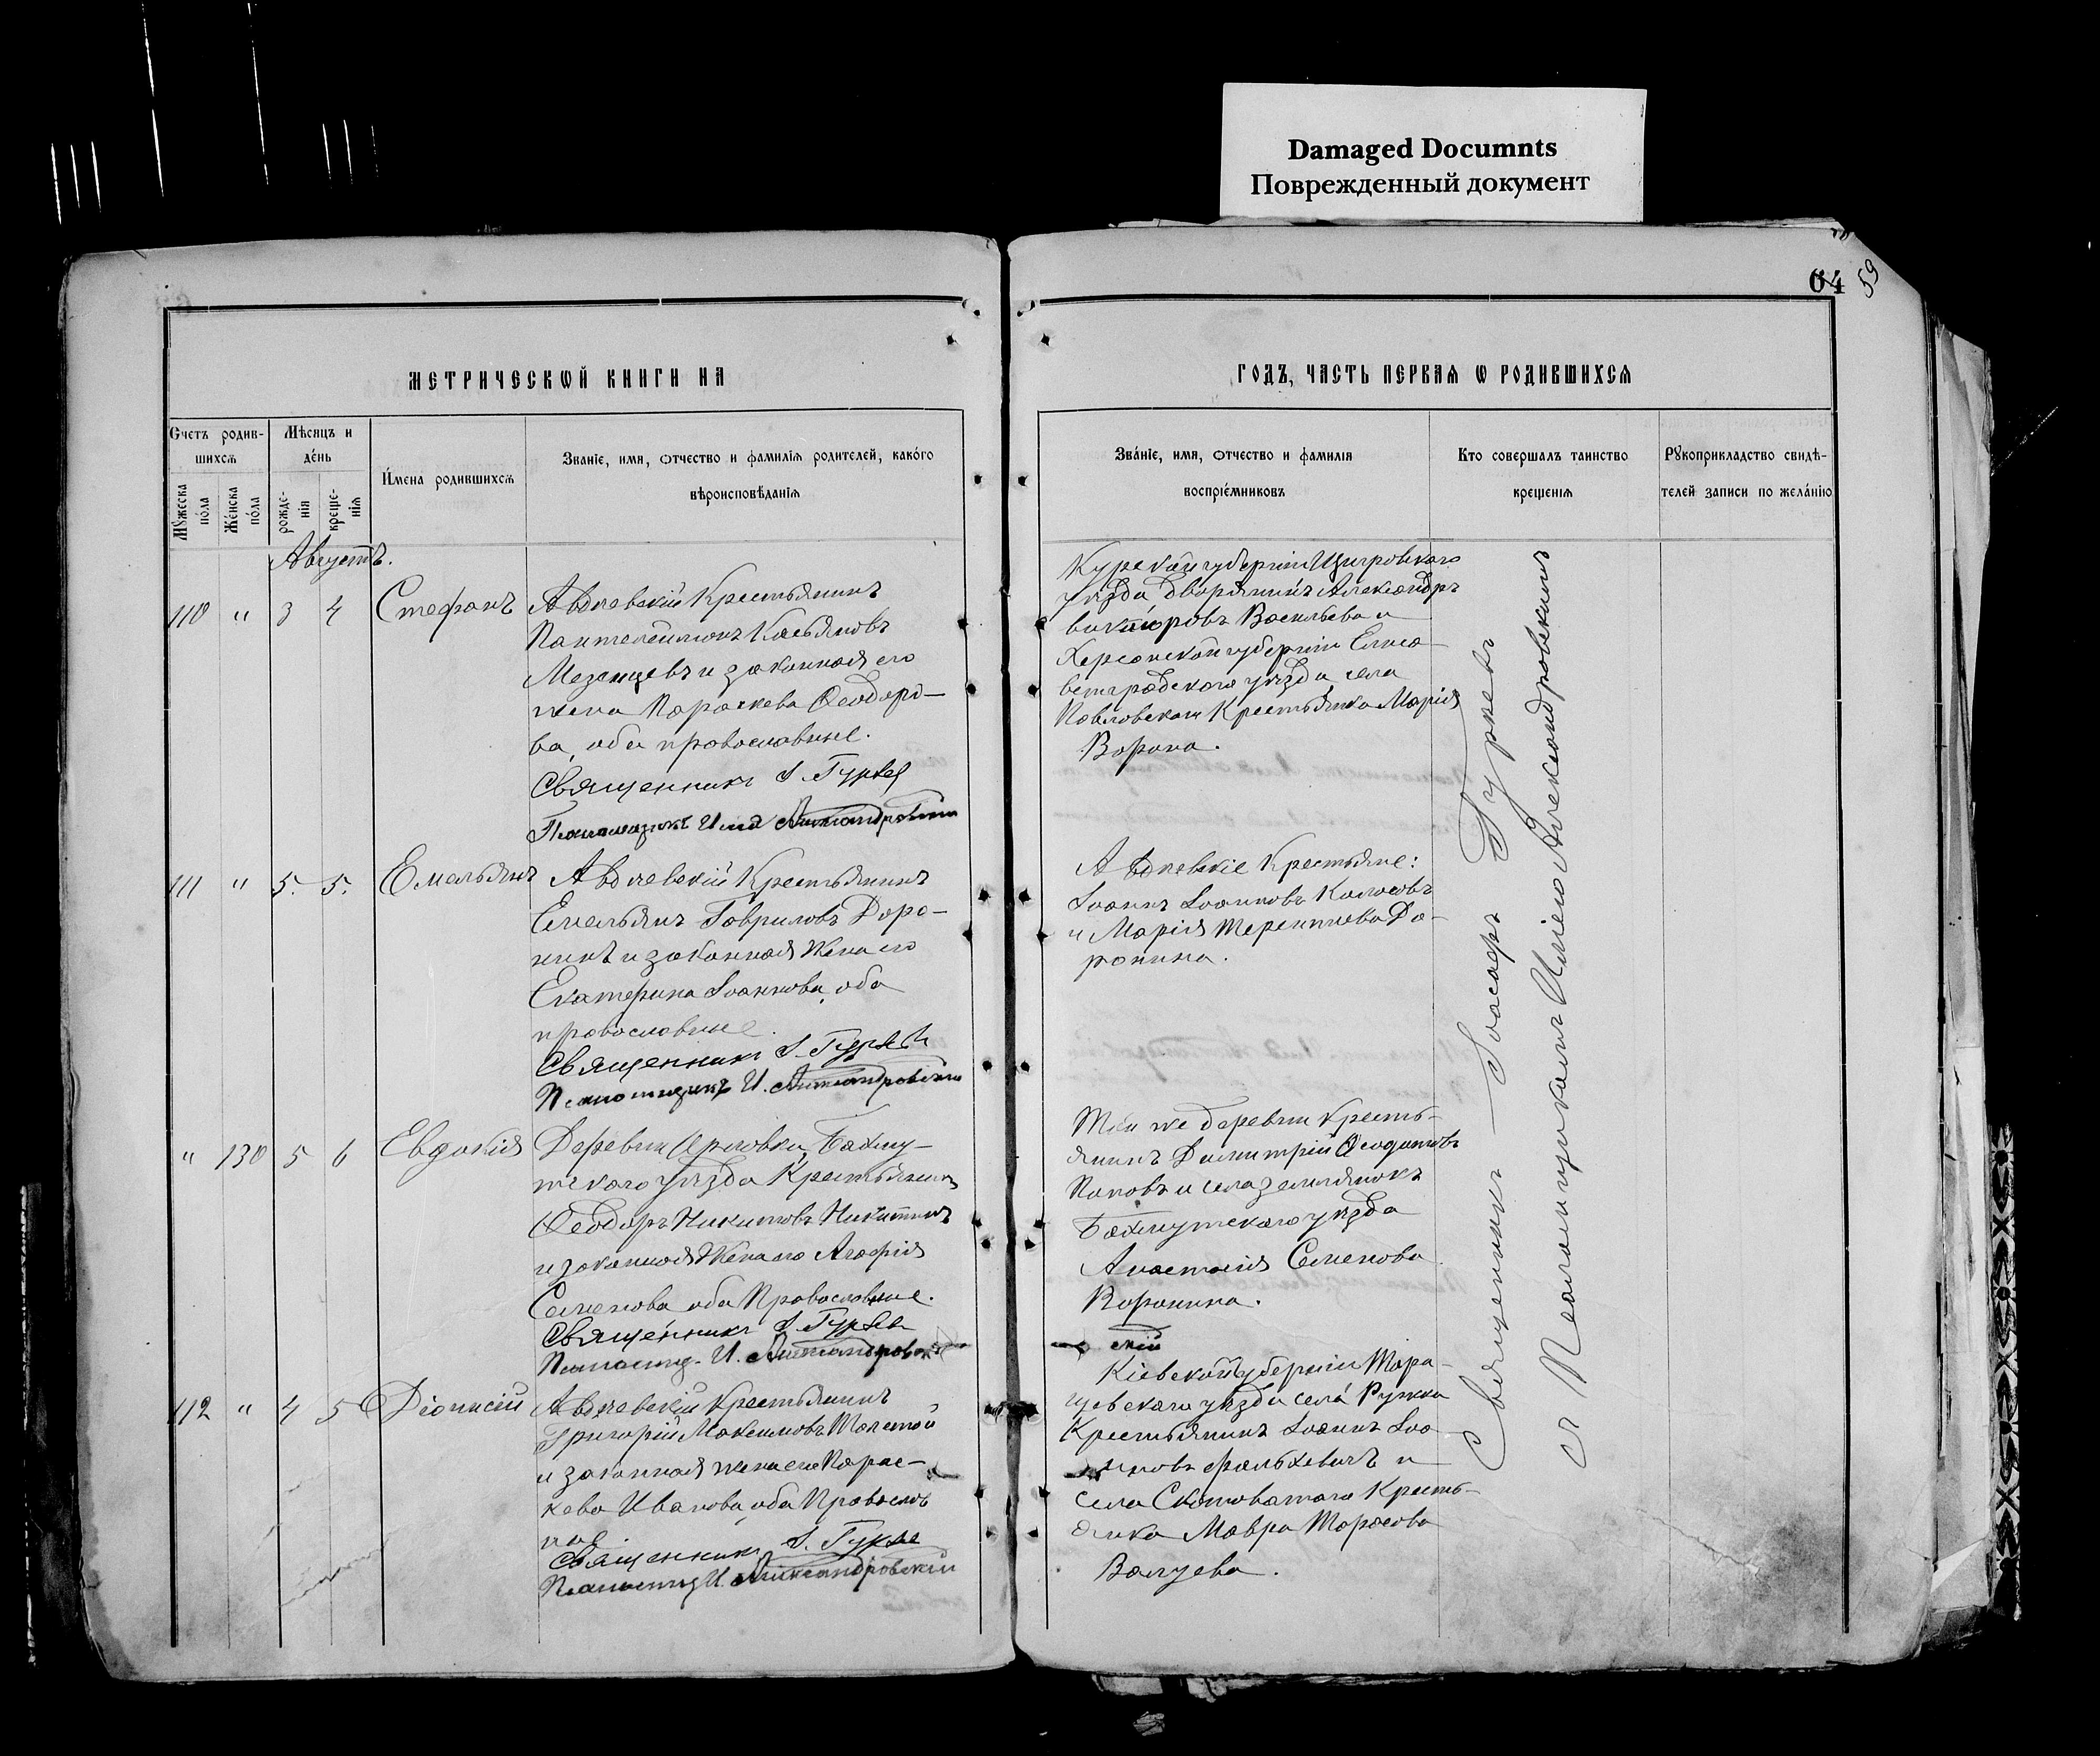 Damaged Documnts
Поврежденный документ
64
59
МЕТРИЧЕСКѠЙ КНИГИ НА
ГОДЪ, ЧАСТЬ ПЕРВАЯ Ѡ РОДИВШИХСЯ
Счетъ родив-
шихсѧ
Мѣсяцъ и
де́нь
Мꙋжеска
по́ла
Же́нска
по́ла
рожде-
нія
креще-
нія
И́мена родившихсѧ
Званіе, имя, ѻтчество и фамилія родителей, како́го
вѣроисповѣданія
Зва́ніе, имя, ѻтчество и фамилія
воспріе́мниковъ
Кто совершалъ таинство
крещенія
Рꙋкоприкладство свидѣ-
телей записи по жела́нію
Августъ.
110 " 3 4 Стефанъ
Авдѣевскій Крестьянинъ
Пантелеимонъ Касьяновъ
Мезенцевъ и законная его
жена Параскева Ѳеодоро-
ва, оба православные.
Священникъ І. Гурьев
Псаломщикъ Илія Александровскій
Курской губерніи Щигровскаго
уѣзда дворянинъ Александръ
Викторовъ Васильева и
Херсонской губерніи Елиса-
ветградскаго уѣзда села
Павловскаго Крестьянка Марія
Ворона.
111 " 5. 5. Емельянъ
Авдѣевскій Крестьянинъ
Емельянъ Гавриловъ Доро-
нинъ и законная жена его
Екатерина Іоаннова, оба
православные.
Священникъ І. Гурьев
Псаломщикъ И. Александровскій
Авдѣевскіе Крестьяне:
Іоаннъ Іоанновъ Колосовъ
и Марія Терентиева До-
ронина.
" 130 5 6 Евдокія
Деревни Орловки, Бахму-
тскаго уѣзда Крестьянинъ
Ѳеодоръ Никитовъ Никитинъ
и законная Жена его Агафія
Семенова оба Православные.
Священникъ І. Гурьев
Псаломщ. И. Александровс-
скій
Той же деревни Кресть-
янинъ Димитрій Ѳеодотовъ
Поповъ и села Землянокъ
Бахмутскаго уѣзда
Анастасія Семенова
Воронина.
112 " 4 5 Діонисій
Авдѣевскій Крестьянинъ
Григорій Максимовъ Толстой
и законная жена его Парас-
кева Иванова, оба Православ
ные.
Священникъ І. Гурьев
Псаломщ И. Александровскій
Кіевской губерніи Тара-
щевскаго уѣзда села Ружки
Крестьянинъ Іоаннъ Іоа-
нновъ Фалькевичъ и
села Скотоватаго Кресть-
янка Мавра Тарасова
Валуева.
Священникъ Іоасафъ Гурьевъ
съ Псаломщикомъ Иліею Александровскимъ